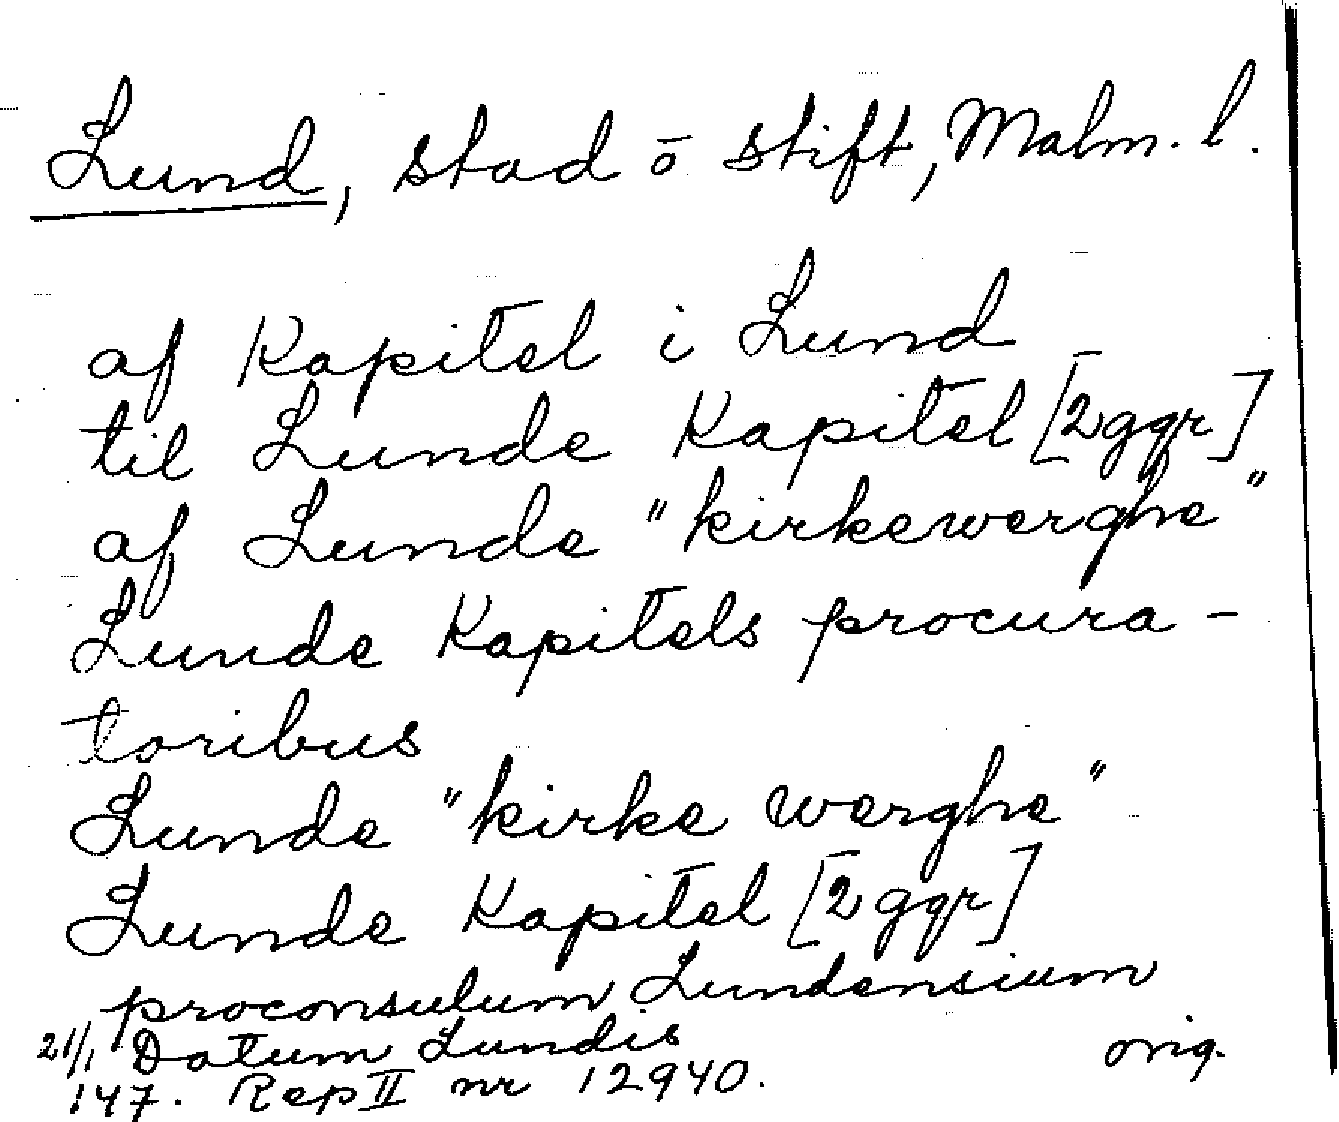 Lund, stad o stift, Malm. l.
af Kapitel i Lund
til Lunde Kapitel [2 ggr]
af Lunde "kirkewerghe"
Lunde Kapitels procura-
toribus
Lunde "kirke werghe"
Lunde Kapitel [2 ggr]
proconsulum Lundensium
21/1 Datum Lundis orig.
147. Rep II nr 12940.